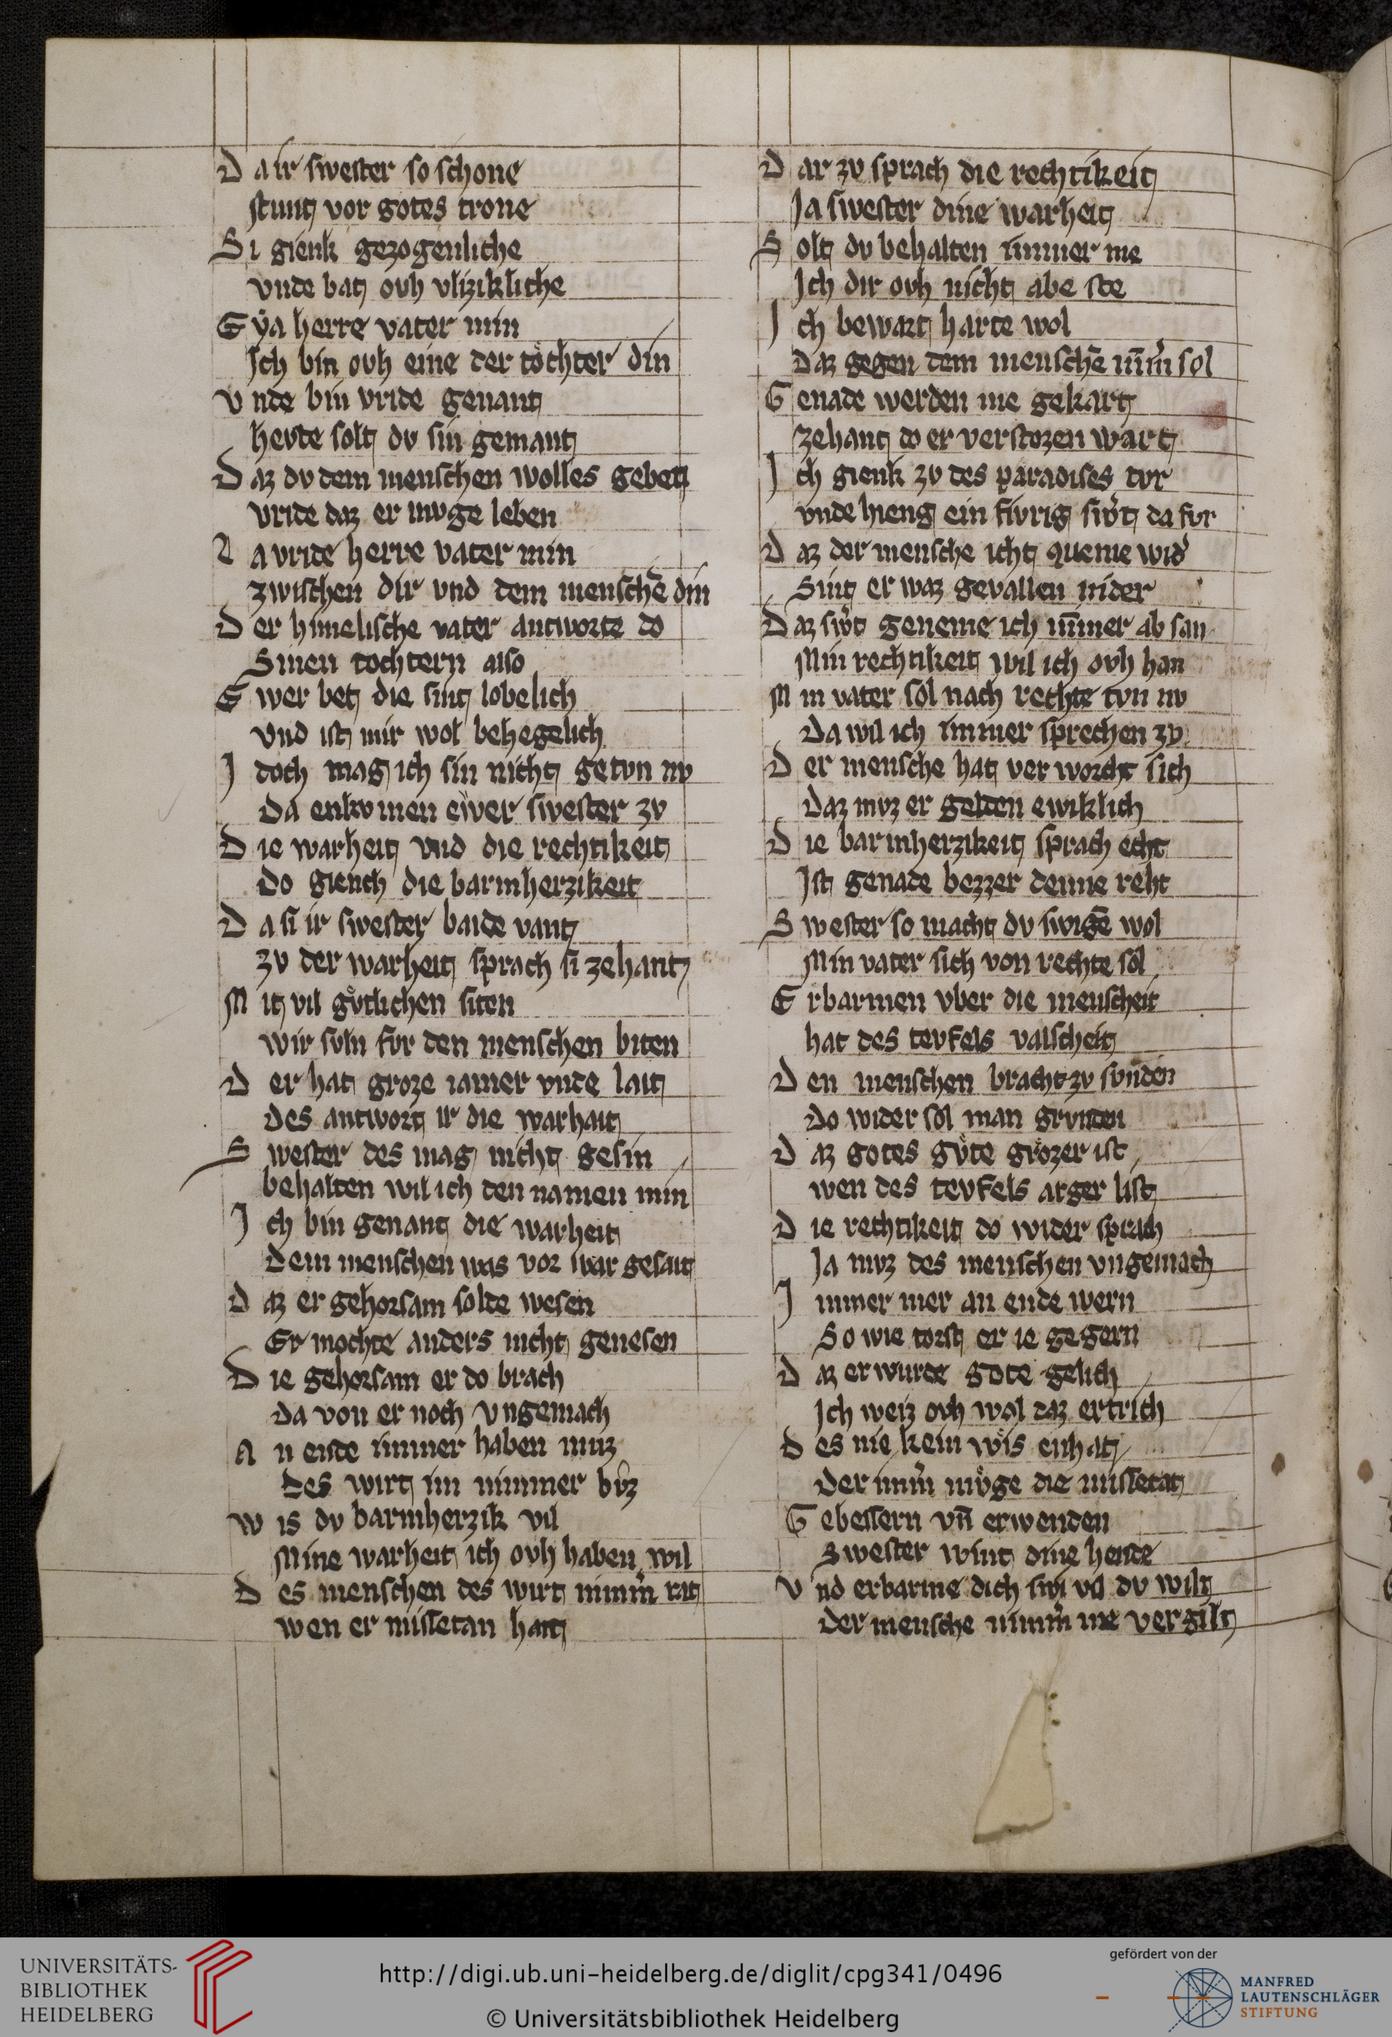 D a ir swester so schone
stunt vor gotes trone
Si gienk gezogenliche
vnde bat ovh vlizikliche
E ẏa herre vater min
Ich bin ovh eine der tochter din
V nde bin vride genant
hevte solt dv sin gemant
D az dv dem menschen wolles geben
vride daz er mvge leben
L a vride herre vater min
zwischen dir vnd dem menschē din
D er himelische vater antworte do
Sinen tochtern also
E wer bet die sint lobelich
vnd ist mir wol behegelich
I doch mag ich sin nicht getvn nv
Da enkvmen ewer swester zv
D ie warheit vnd die rechtikeit
Do giench die barmherzikeit
D a si ir swester baide vant
zv der warheit sprach si zehant
M it vil gvtlichen siten
wir svln fvr den menschen biten
D er hat groze iamer vnde lait
des antwort ir die warhait
S wester des mag nicht gesin
behalten wil ich den namen min
I ch bin genant die warheit
Dem menschen was vor war gesait
D az er gehorsam solde wesen
Er mochte anders nicht genesen
D ie gehorsam er do brach
da von er noch vngemach
A n ende immer haben mvz
Des wirt im nimmer bvz
W is dv barmherzik vil
Mine warheit ich ovh haben wil
D es menschen des wirt nimm̄ rat
wen er missetan hat
D ar zv sprach die rechtikeit
Ja swester dine warheit
S olt dv behalten immer me
Ich dir ovh nicht abe ste
I ch bewart harte wol
daz gegen dem menschē nim̄ sol
G enade werden me gekart
zehant do er verstozen wart
I ch gienk zv des paradises tvr
vnde hieng ein fivrig swt da fvr
D az der mensche icht queme wid
Sint er waz gevallen nider
D az swt geneme ich nim̄mer ab san
Min rechtikeit wil ich ovh han
M in vater sol nach rechte tvn nv
Da wil ich immer sprechen zv
D er mensche hat ver worcht sich
daz mvz er gelden ewiklich
D ie barmherzikeit sprach echt
Ist genade bezzer denne reht
S wester so macht dv swigē wol
Min vater sich von rechte sol
E rbarmen vber die menscheit
hat des tevfels valscheit
D en menschen bracht zv svnden
Do wider sol man grvnden
D az gotes gvte grozer ist
wen des tevfels arger list
D ie rechtikeit do wider sprach
Ja mvz des menschen vngemach
I mmer mer an ende wern
So wie torst er ie gegern
D az er wurde gote gelich
Ich weiz ovh wol daz ertrich
D es nie kein wis enhat
Der imm̄ mvge die missetat
G ebessern vn̄ erwenden
Swester wint dine hende
V nd erbarme dich swi vil dv wilt
Der mensche nimm̄ me vergilt
UNIVERSITÄTS-
BIBLIOTHEK
HEIDELBERG
http://digi.ub.uni-heidelberg.de/diglit/cpg341/0496
© Universitätsbibliothek Heidelberg
gefördert von der
MANFRED
LAUTENSCHLÄGER
STIFTUNG